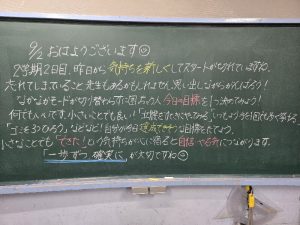 9/2 おはようございます☺
2学期2日目。昨日から気持ちを新しくしてスタートが切れていますね。
忘れてしまっていること先生もあるかもしれません。思い出しながらがんばろう!
なかなかモードが切り替わらずに困る人 今日の目標を1つ決めてみよう!
何でもいいです。小さいことでも良い!「宿題を
「ゴミを3つひろう」などなど!自分が今日達成できそうな目標をたてよう。
小さなことでも「できた!」という気持ちが心に宿ると自信・やる気につながります。
「一歩ずつ確実に」が大切ですね☺